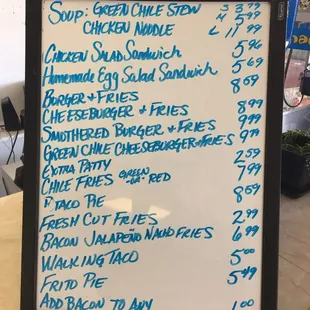 SOUP: GREEN CHILE STEW S 3.99
CHICKEN NOODLE 4 5.99
L 11.99
CHICKEN SALAD SANDWICH 5.96
HOMEMADE EGG SALAD SANDWICH 5.69
BURGER + FRIES 8.69
CHEESEBURGER + FRIES 8.99
SMOTHERED BURGER + FRIES 9.99
GREEN CHILE CHEESEBURGER + FRIES 9.79
EXTRA PATTY 2.59
CHILE FRIES GREEN "OR" RED 7.99
TACO PIE 8.69
FRESH CUT FRIES 2.99
BACON JALAPEÑO NACHO FRIES 6.99
WALKING TACO 5.00
FRITO PIE 5.49
ADD BACON TO ANY 1.00